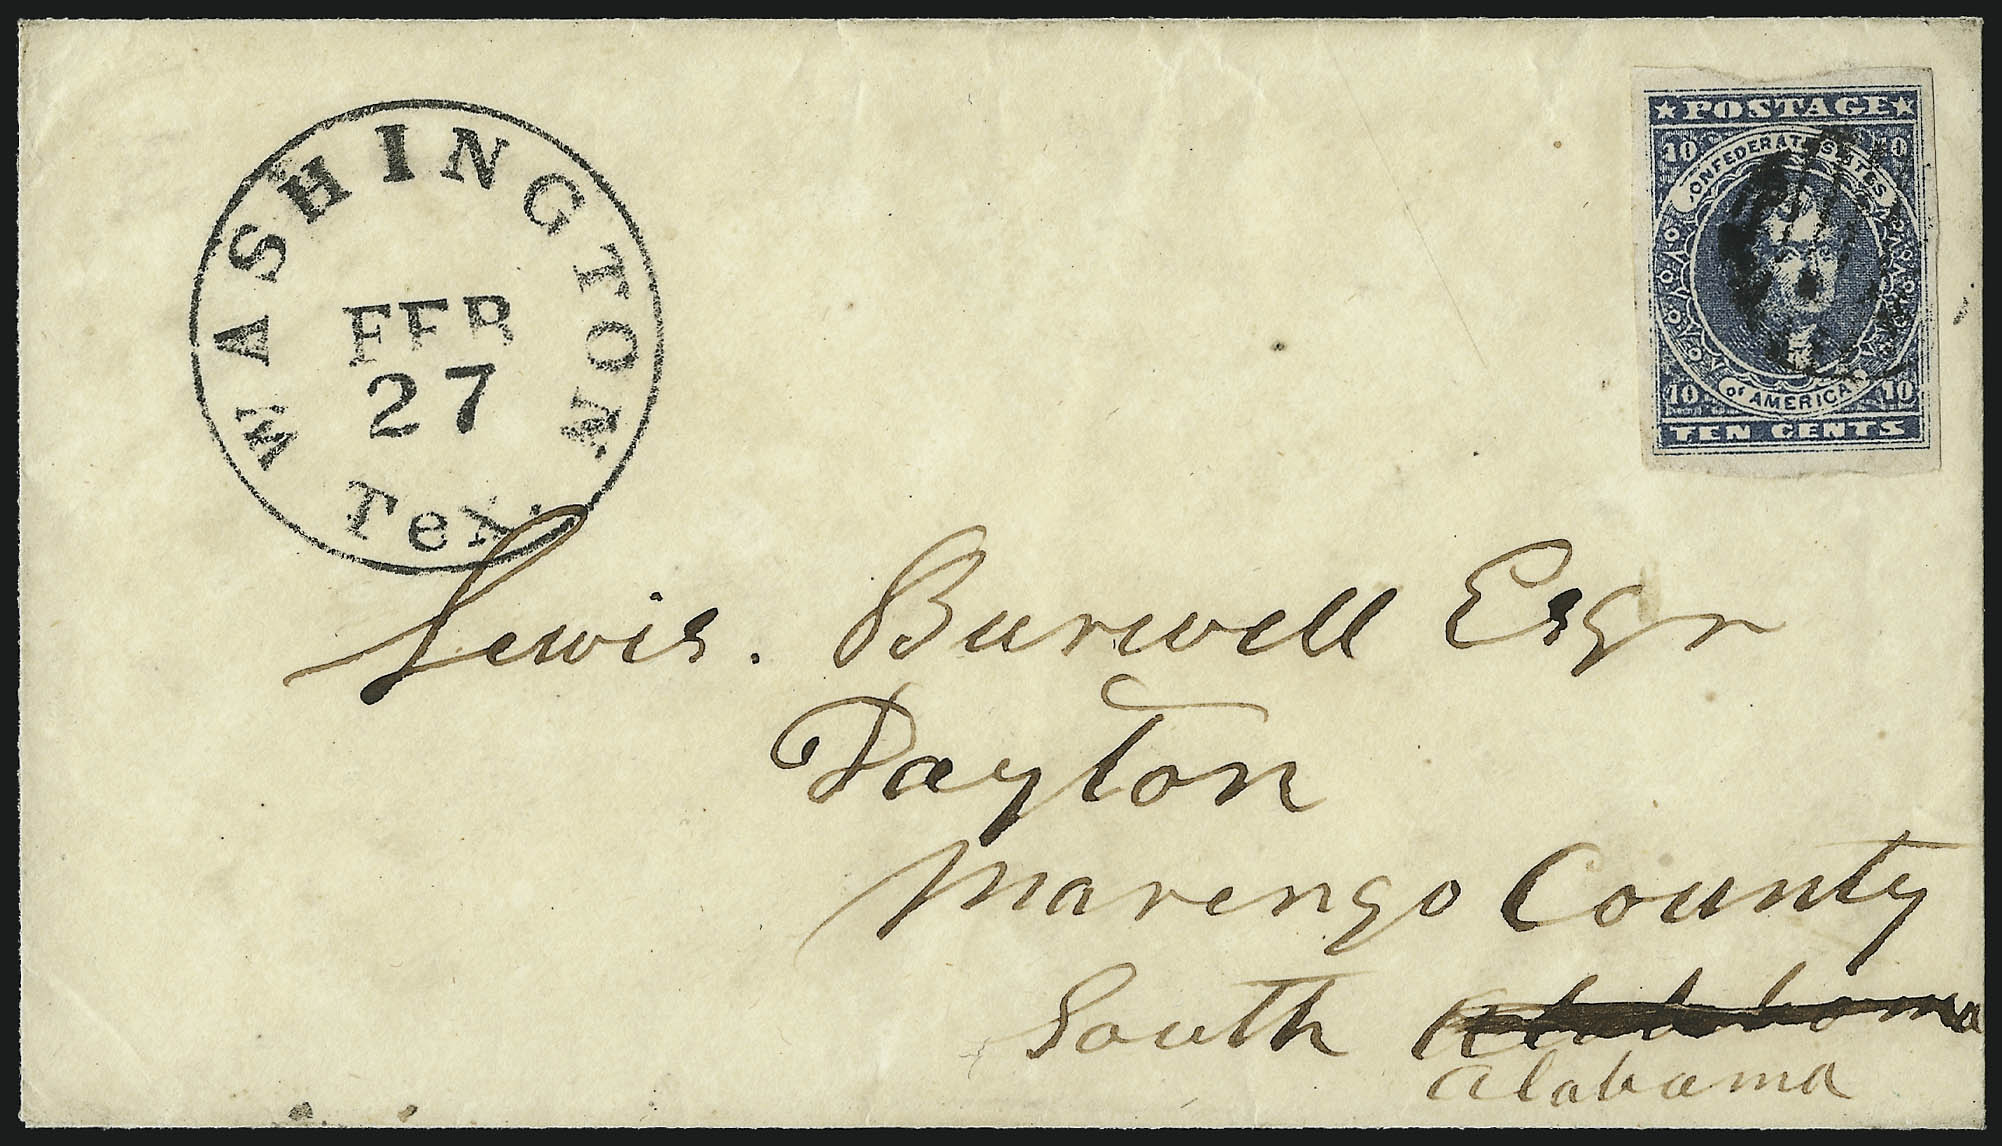 WASHINGTON
FEB
27
Tex.
★ POSTAGE ★
10 10
CONFEDERATE STATES
of AMERICA
10 10
TEN CENTS
Lewis. Burwell Esqr
Dayton
Marengo County
South
Alabama